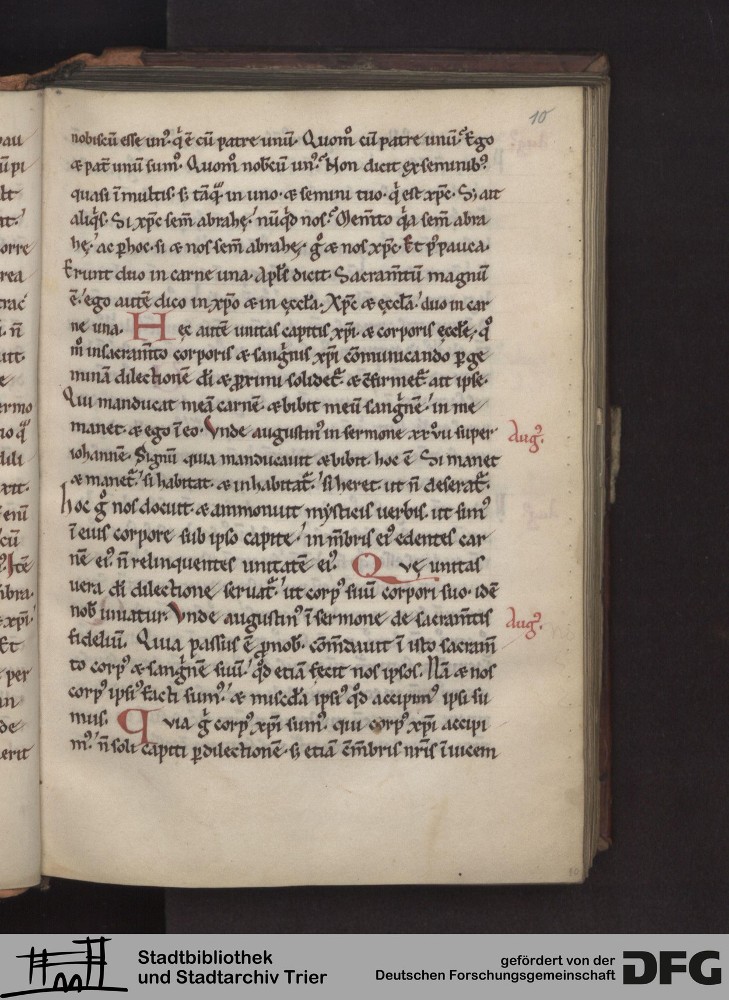 10
nobiscū esse un9. q̄ ē cū patre unū. Quom̊ cū patre unū? Ego
& pat̄ unū sum9. Quom̊ nobcū un9? Non dicit ex seminib9.
quasi ī multis. s; tāq̄ in uno. & semini tuo. q̄ est xp̄c. S; ait
aliq̄s. Si xp̄c sem̄ abrahę. nūq̄d nos? Mem̄to q̄a sem̄ abra
hę. ac p hoc. si & nos sem̄ abrahę. g̊ & nos xp̄c. Et p9 pauca.
Erunt duo in carne una. Apl̄s dicit. Sacram̄tū magnū
ē. ego autē dico in xp̄o & in ęccl̄a. Xp̄c & ęccl̄a. duo in car
ne una. Hęc autē unitas capitis xp̄i. & corporis ęccl̄ę. q̊
m̊ in sacram̄to corporis & sanḡnis xp̄i cōmunicando p ge
minā dilectionē dī & p̄ximi solidet̄. & cfirmet̄. ait ipse.
Qui manducat meā carnē. & bibit meū sanḡnē. in me
manet. & ego ī eo. Vnde augustin9 in sermone xxvıı super
Aug9.
iohannē. Signū quia manducauit & bibit. hoc ē. Si manet
& manet̄. si habitat. & inhabitat̄. si heret ut n̄ deserat̄.
hoc g̊ nos docuit. & ammonuit mysticis uerbis. ut sim9
ī eius corpore sub ipso capite. in m̄bris ei9 edentes car
nē ei9. n̄ relinquentes unitatē ei9. Quę unitas
uera dī dilectione seruat̄. ut corp9 suū corpori suo. idē
nob̄ uniatur. Vnde augustin9 ī sermone de sacram̄tis
Aug9.
fidelium. Quia passus ē p̄ nob̄. cōm̄dauit ī isto sacram̄
to corp9 & sanḡnē suū. q̊d etiā fecit nos ipsos. Nā & nos
corp9 ipsi9 facti sum9. & miscd̄ia ipsi9 q̊d accipim9 ipsi su
mus. Quia g̊ corp9 xp̄i sum9. qui corp9 xp̄i accipi
m9. n̄ soli capiti p dilectionē. s; etiā & m̄bris nr̄is īuicem
Stadtbibliothek
und Stadtarchiv Trier
gefördert von der
Deutschen Forschungsgemeinschaft
DFG